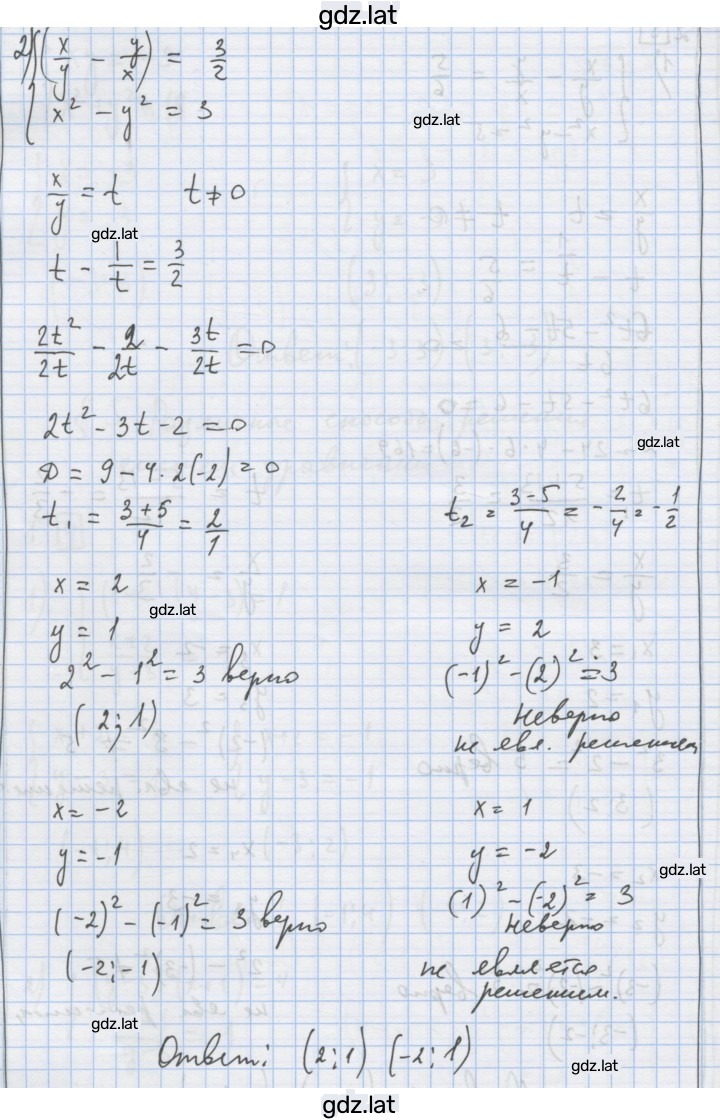 gdz.lat
2) { (x/y - y/x) = 3/2
x² - y² = 3
gdz.lat
x/y = t   t ≠ 0
gdz.lat
t - 1/t = 3/2
2t²/2t - 2/2t - 3t/2t = 0
2t² - 3t - 2 = 0
gdz.lat
D = 9 - 4·2(-2) = 0
t₁ = (3+5)/4 = 2/1
t₂ = (3-5)/4 = -2/4 = -1/2
x = 2
gdz.lat
y = 1
2² - 1² = 3 верно
(2; 1)
x = -1
y = 2
(-1)² - (2)² = 3
Неверно
не явл. решением
x = -2
y = -1
(-2)² - (-1)² = 3 верно
(-2; -1)
x = 1
y = -2
gdz.lat
(1)² - (-2)² = 3
Неверно
не является
решением.
gdz.lat
Ответ: (2; 1) (-2; 1)
gdz.lat
gdz.lat